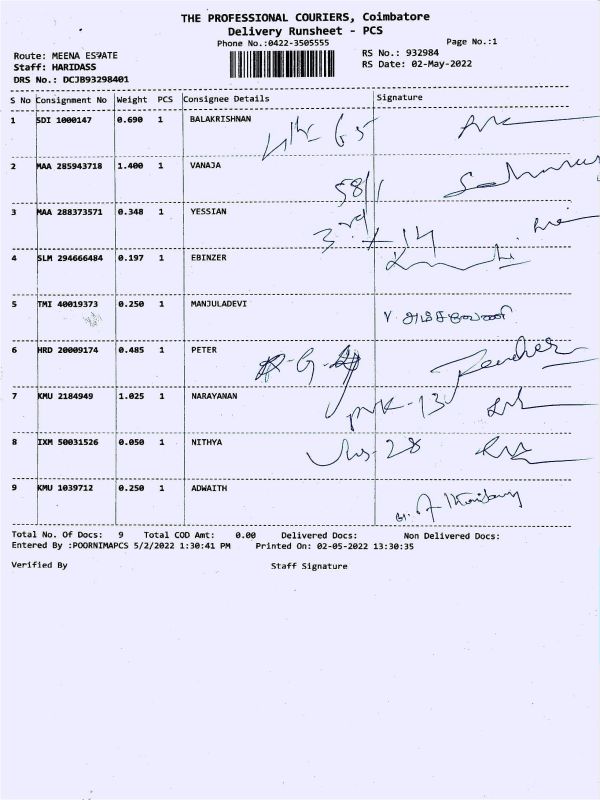 THE PROFESSIONAL COURIERS, Coimbatore
Delivery Runsheet - PCS
Phone No.:0422-3505555 Page No.:1
Route: MEENA ESTATE RS No.: 932984
Staff: HARIDASS RS Date: 02-May-2022
DRS No.: DCJB93298401
S No Consignment No Weight PCS Consignee Details Signature
1 SDI 1000147 0.690 1 BALAKRISHNAN
65
2 MAA 285943718 1.400 1 VANAJA
58/1
3 MAA 288373571 0.348 1 YESSIAN
3rd
4 SLM 294666484 0.197 1 EBINZER
5 TMI 40019373 0.250 1 MANJULADEVI
6 HRD 20009174 0.485 1 PETER
7 KMU 2184949 1.025 1 NARAYANAN
-13
8 IXM 50031526 0.050 1 NITHYA
-28
9 KMU 1039712 0.250 1 ADWAITH
Total No. Of Docs: 9 Total COD Amt: 0.00 Delivered Docs: Non Delivered Docs:
Entered By :POORNIMAPCS 5/2/2022 1:30:41 PM Printed On: 02-05-2022 13:30:35
Verified By Staff Signature